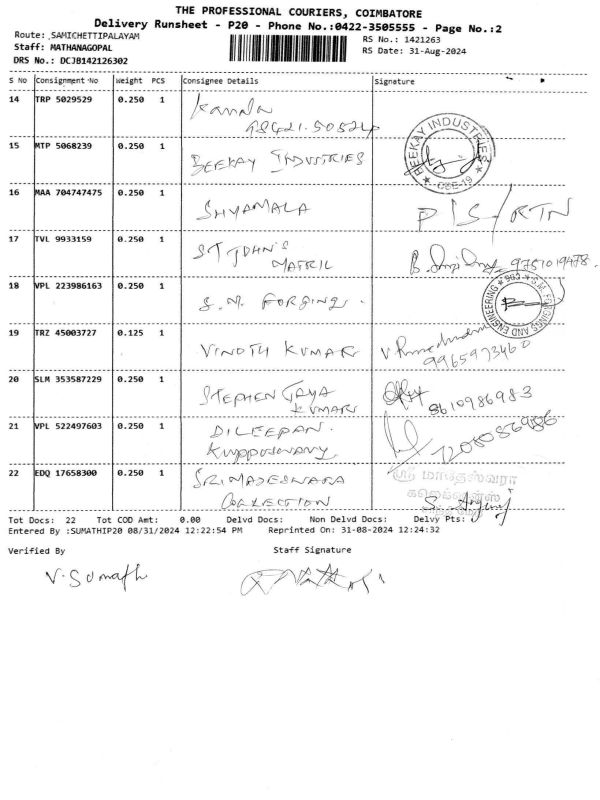 THE PROFESSIONAL COURIERS, COIMBATORE
Delivery Runsheet - P20 - Phone No.:0422-3505555 - Page No.:2
Route: ,SAMICHETTIPALAYAM
RS No.: 1421263
Staff: MATHANAGOPAL
RS Date: 31-Aug-2024
DRS No.: DCJB142126302
S No Consignment No Weight PCS Consignee Details Signature
14 TRP 5029529 0.250 1
15 MTP 5068239 0.250 1 BEEKAY INDUSTRIES
BEEKAY INDUSTRIES
CBE-19
16 MAA 704747475 0.250 1 SHYAMALA P/S/RTN
17 TVL 9933159 0.250 1 ST JOHN'S
MATRIC 9751019478.
18 VPL 223986163 0.250 1 S.M. FORGINGS.
S.M. FORGINGS AND ENGINEERING
19 TRZ 45003727 0.125 1 VINOTH KUMAR
9965973460
20 SLM 353587229 0.250 1 STEPHEN JAYA
KUMAR 8610986983
21 VPL 522497603 0.250 1 DILEEPAN.
Kuppuswamy
22 EDQ 17658300 0.250 1 SRI MADESWARA
COLLECTION
ஸ்ரீ மாதேஸ்வரா
Tot Docs: 22 Tot COD Amt: 0.00 Delvd Docs: Non Delvd Docs: Delvy Pts:
Entered By :SUMATHIP20 08/31/2024 12:22:54 PM Reprinted On: 31-08-2024 12:24:32
Verified By Staff Signature
V. Sumathi